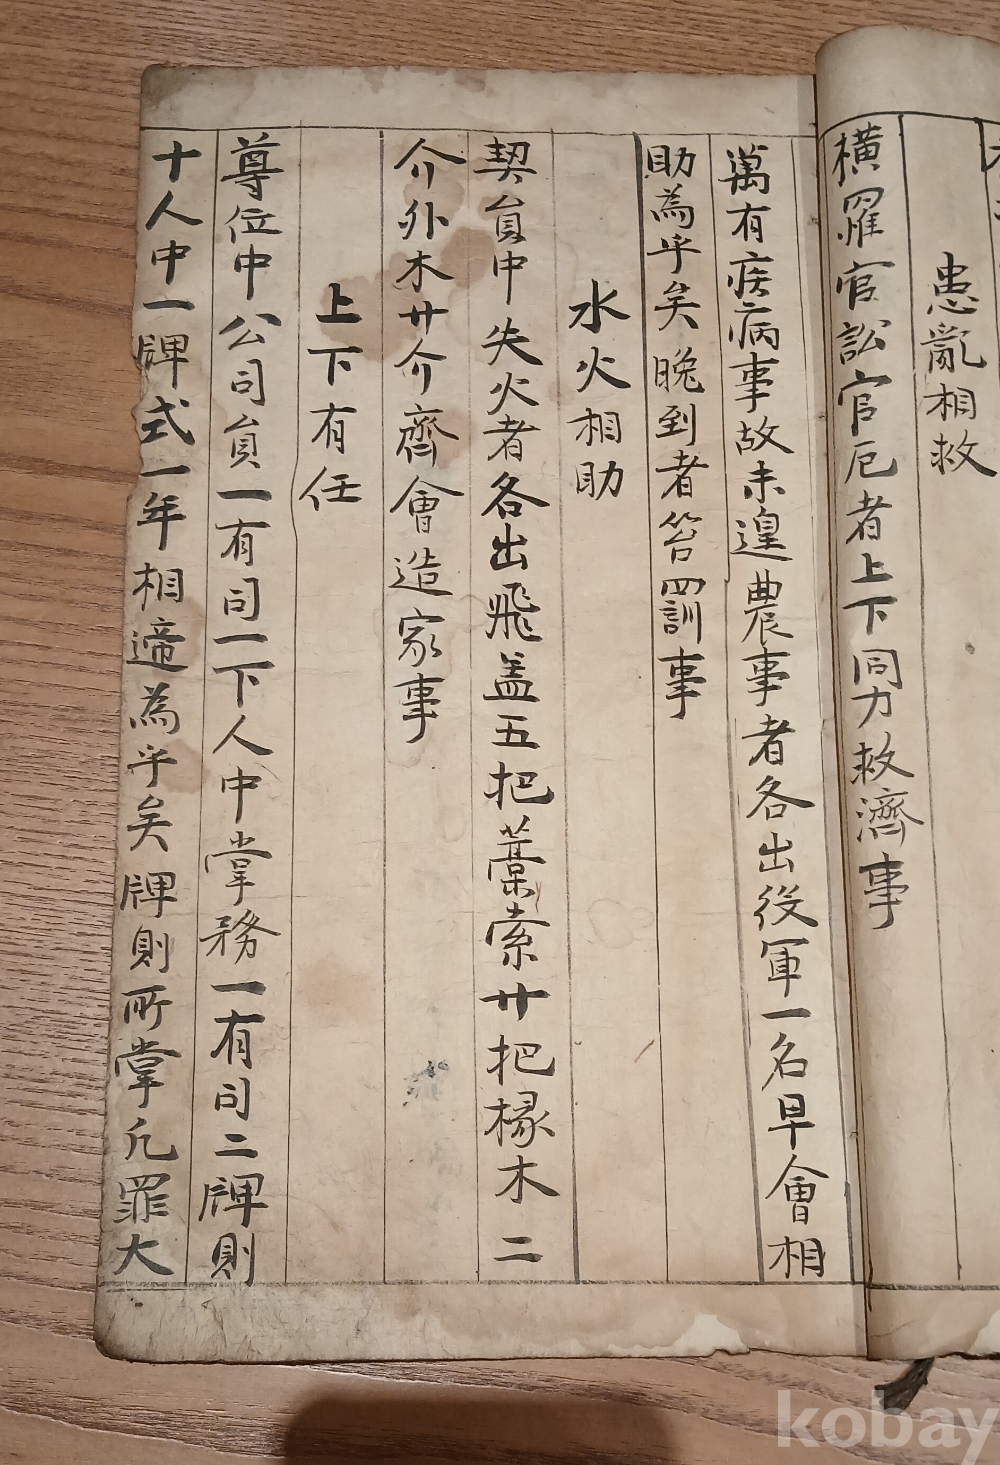 患亂相救
橫罹官訟官厄者上下同力救濟事
萬有疾病事故未遑農事者各出役軍一名早會相
助為乎矣晚到者笞四訓事
水火相助
契員中失火者各出飛盖五把藁索廿把椽木二
介外木廿介齊會造家事
上下有任
尊位中公司員一有司一下人中掌務一有司二牌則
十人中一牌式一年相遆為乎矣牌則所掌凡罪大
kobay